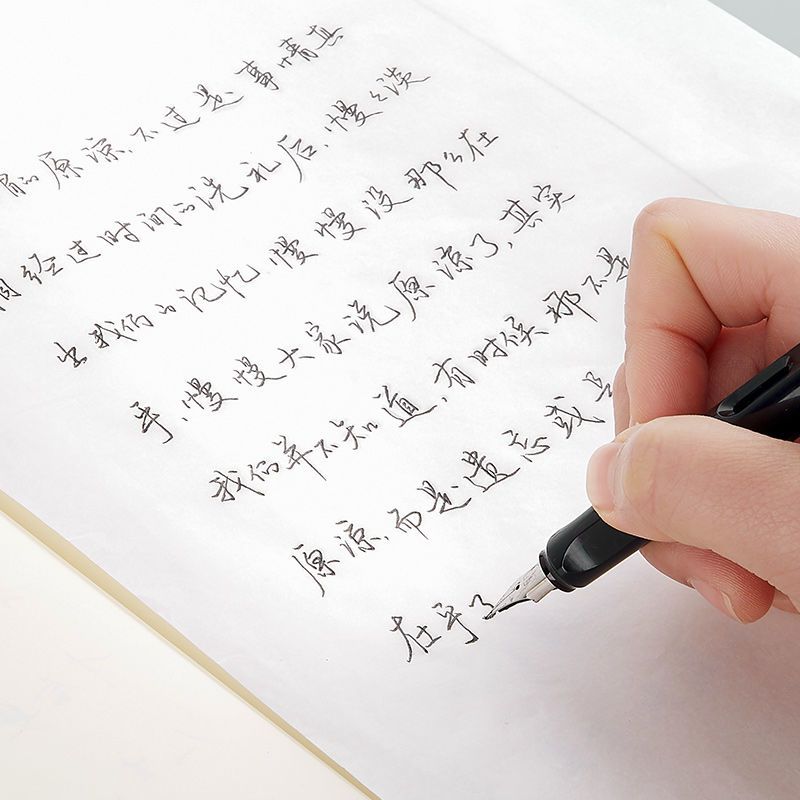 原谅,不过是事情真
经过时间的洗礼后,慢慢淡
出我们的记忆,慢慢没那么在
乎,慢慢大家说原谅了,其实
我们并不知道,有时候那不是
原谅,而是遗忘或是
在乎了